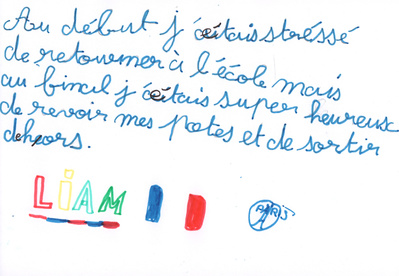 Au début j'étais stréssé
de retourner à l'école mais
au binal j'étais super heureux
de revoir mes potes et de sortir
dehors.
LiAM
PARIS